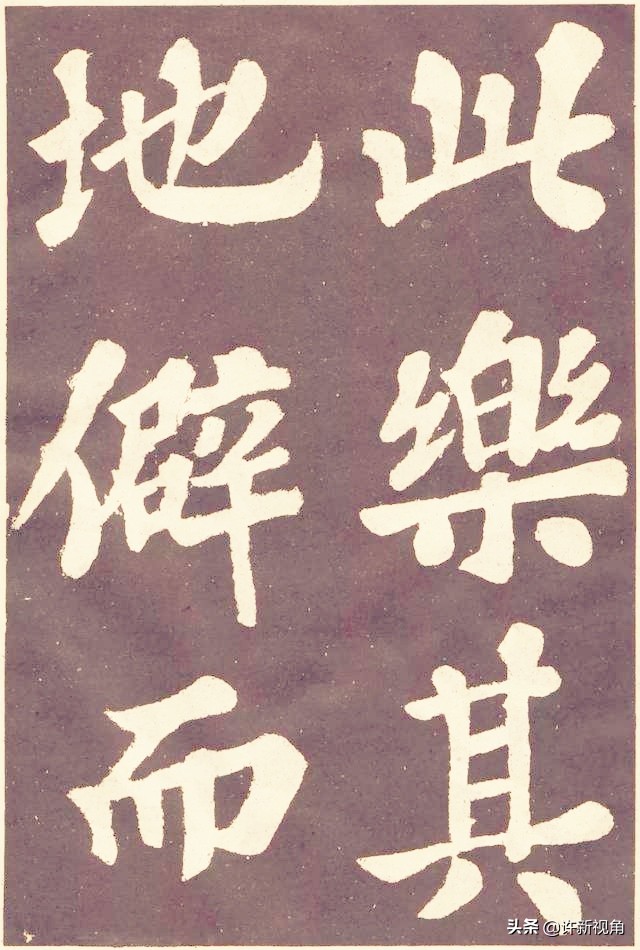 此樂其
地僻而
头条 @许新视角